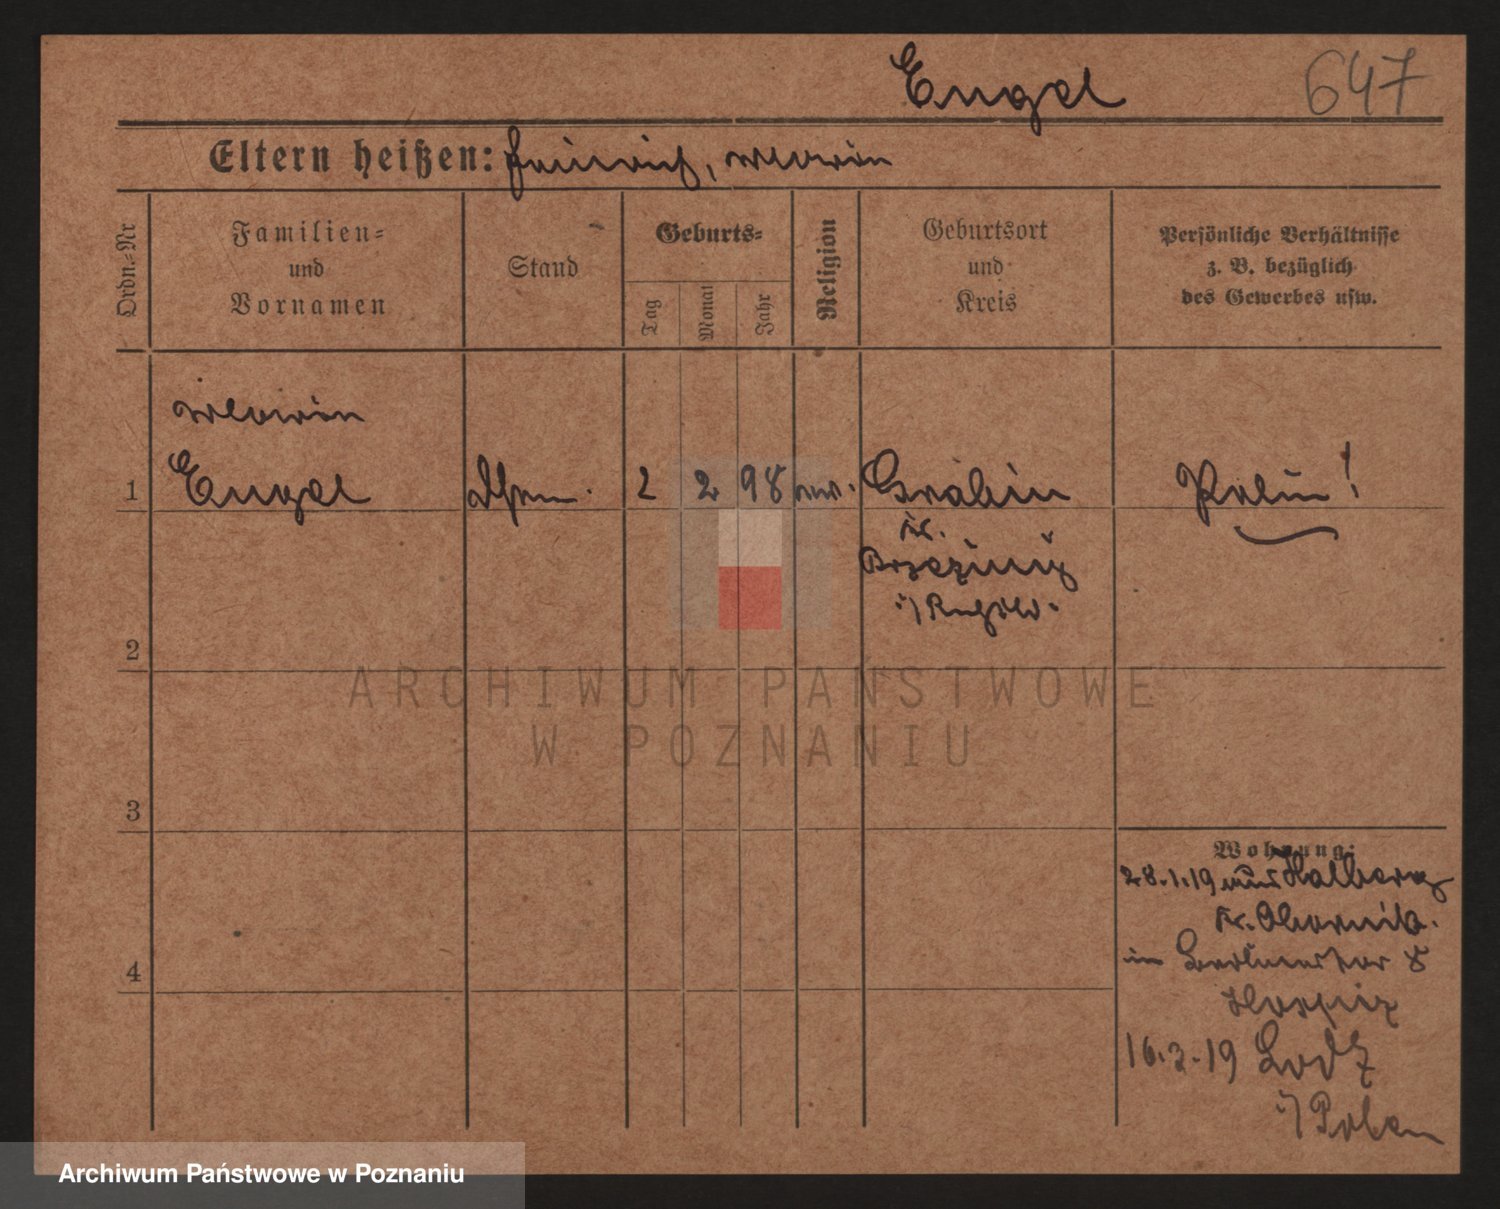 Engel 647
Eltern heißen: Heinrich,
Ordn.-Nr
Familien-
und
Vornamen
Stand
Geburts-
Tag
Monat
Jahr
Religion
Geburtsort
und
Kreis
Persönliche Verhältnisse
z. B. bezüglich
des Gewerbes usw.
1 Engel 2 2 98 Grabin Polin!
Kr.
Brzeziny
i/Rußld.
2
3
4
Wohnung:
28.1.19 aus
Kr. Obornik.
im Berliner Tor 8
Hospiz
16.2.19 Lodz
i/Polen
ARCHIWUM PAŃSTWOWE
W POZNANIU
Archiwum Państwowe w Poznaniu